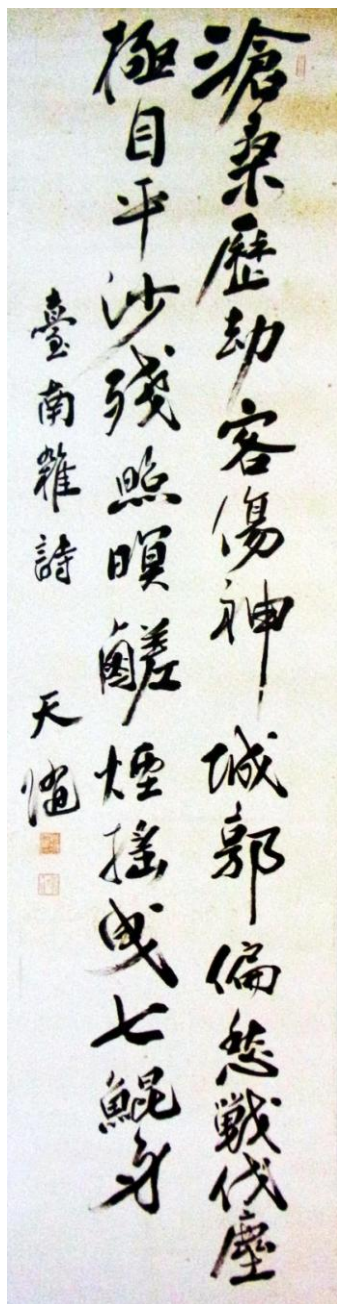 滄桑歷劫客傷神城郭偏愁戰伐塵
極目平沙殘照暝鹺煙搖曳七鯤身
臺南雜詩
天